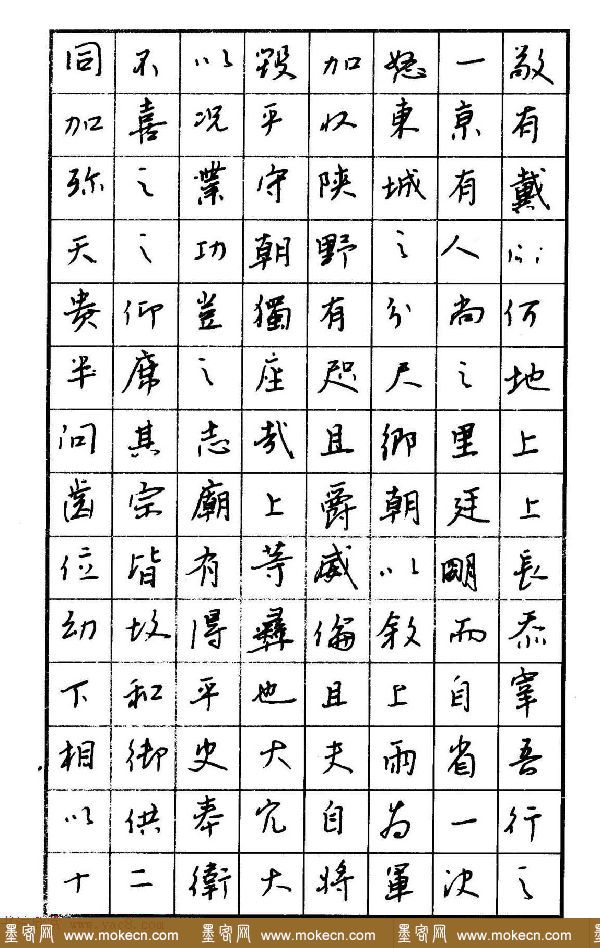 同不以毁加怒一敢
加喜况平收東京有
弥之業守陕城有戴
天之功朝野之人所
貴仰豈獨有分尚何
半席之座咫尺之地
问其志哉且鄉里上
齒宗廟上爵朝廷上
位皆有等威以明長
幼故得彝倫敘而忝
下和平也且上自宰
相御史大夫兩省吾
以供奉宂自為一行
十二衛大將軍次之
墨客网 www.mokecn.com 墨客网 www.mokecn.com 墨客网 www.mokecn.com